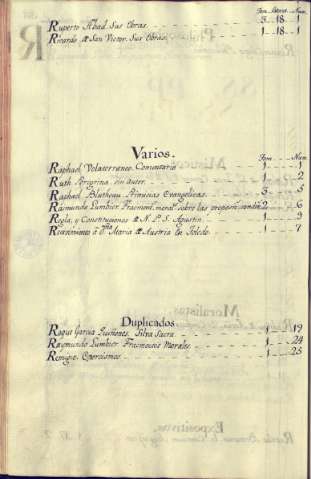 Tom. Estant. Num.
Ruperto Abad. Sus Obras. 3. 18. 1
Ricardo de San Victor. Sus Obras. 1. 18. 1
Varios.
Tom. Num.
Raphael Volaterraneo. Comentario 1 1
Ruth Peregrina. sin autor. 1 2
Raphael Blutheau. Primicias Evangelicas. 3 5
Raimundo Lumbier. Fragment. moral. sobre las proposic. 2 6
Regla, y Constituciones de N. P. S. Agustin 1 3
Recevimiento â Dña Maria de Austria en Toledo. 1 7
Duplicados
Roque Garcia Quiñones. Silva Sacra 1 19
Raymundo Lumbier. Fragmentos Morales. 1 24
Remigio. Exorcismos. 1 25